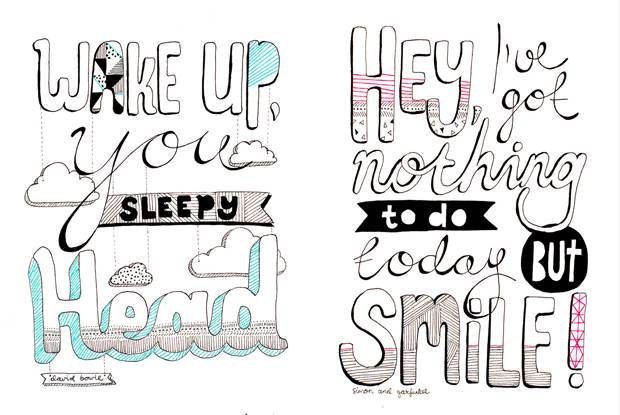 WAKE UP,
you
SLEEPY
Head
'david bowie'
HEY, I've
got
nothing
to do
today BUT
SMiLE!
simon and garfunkel